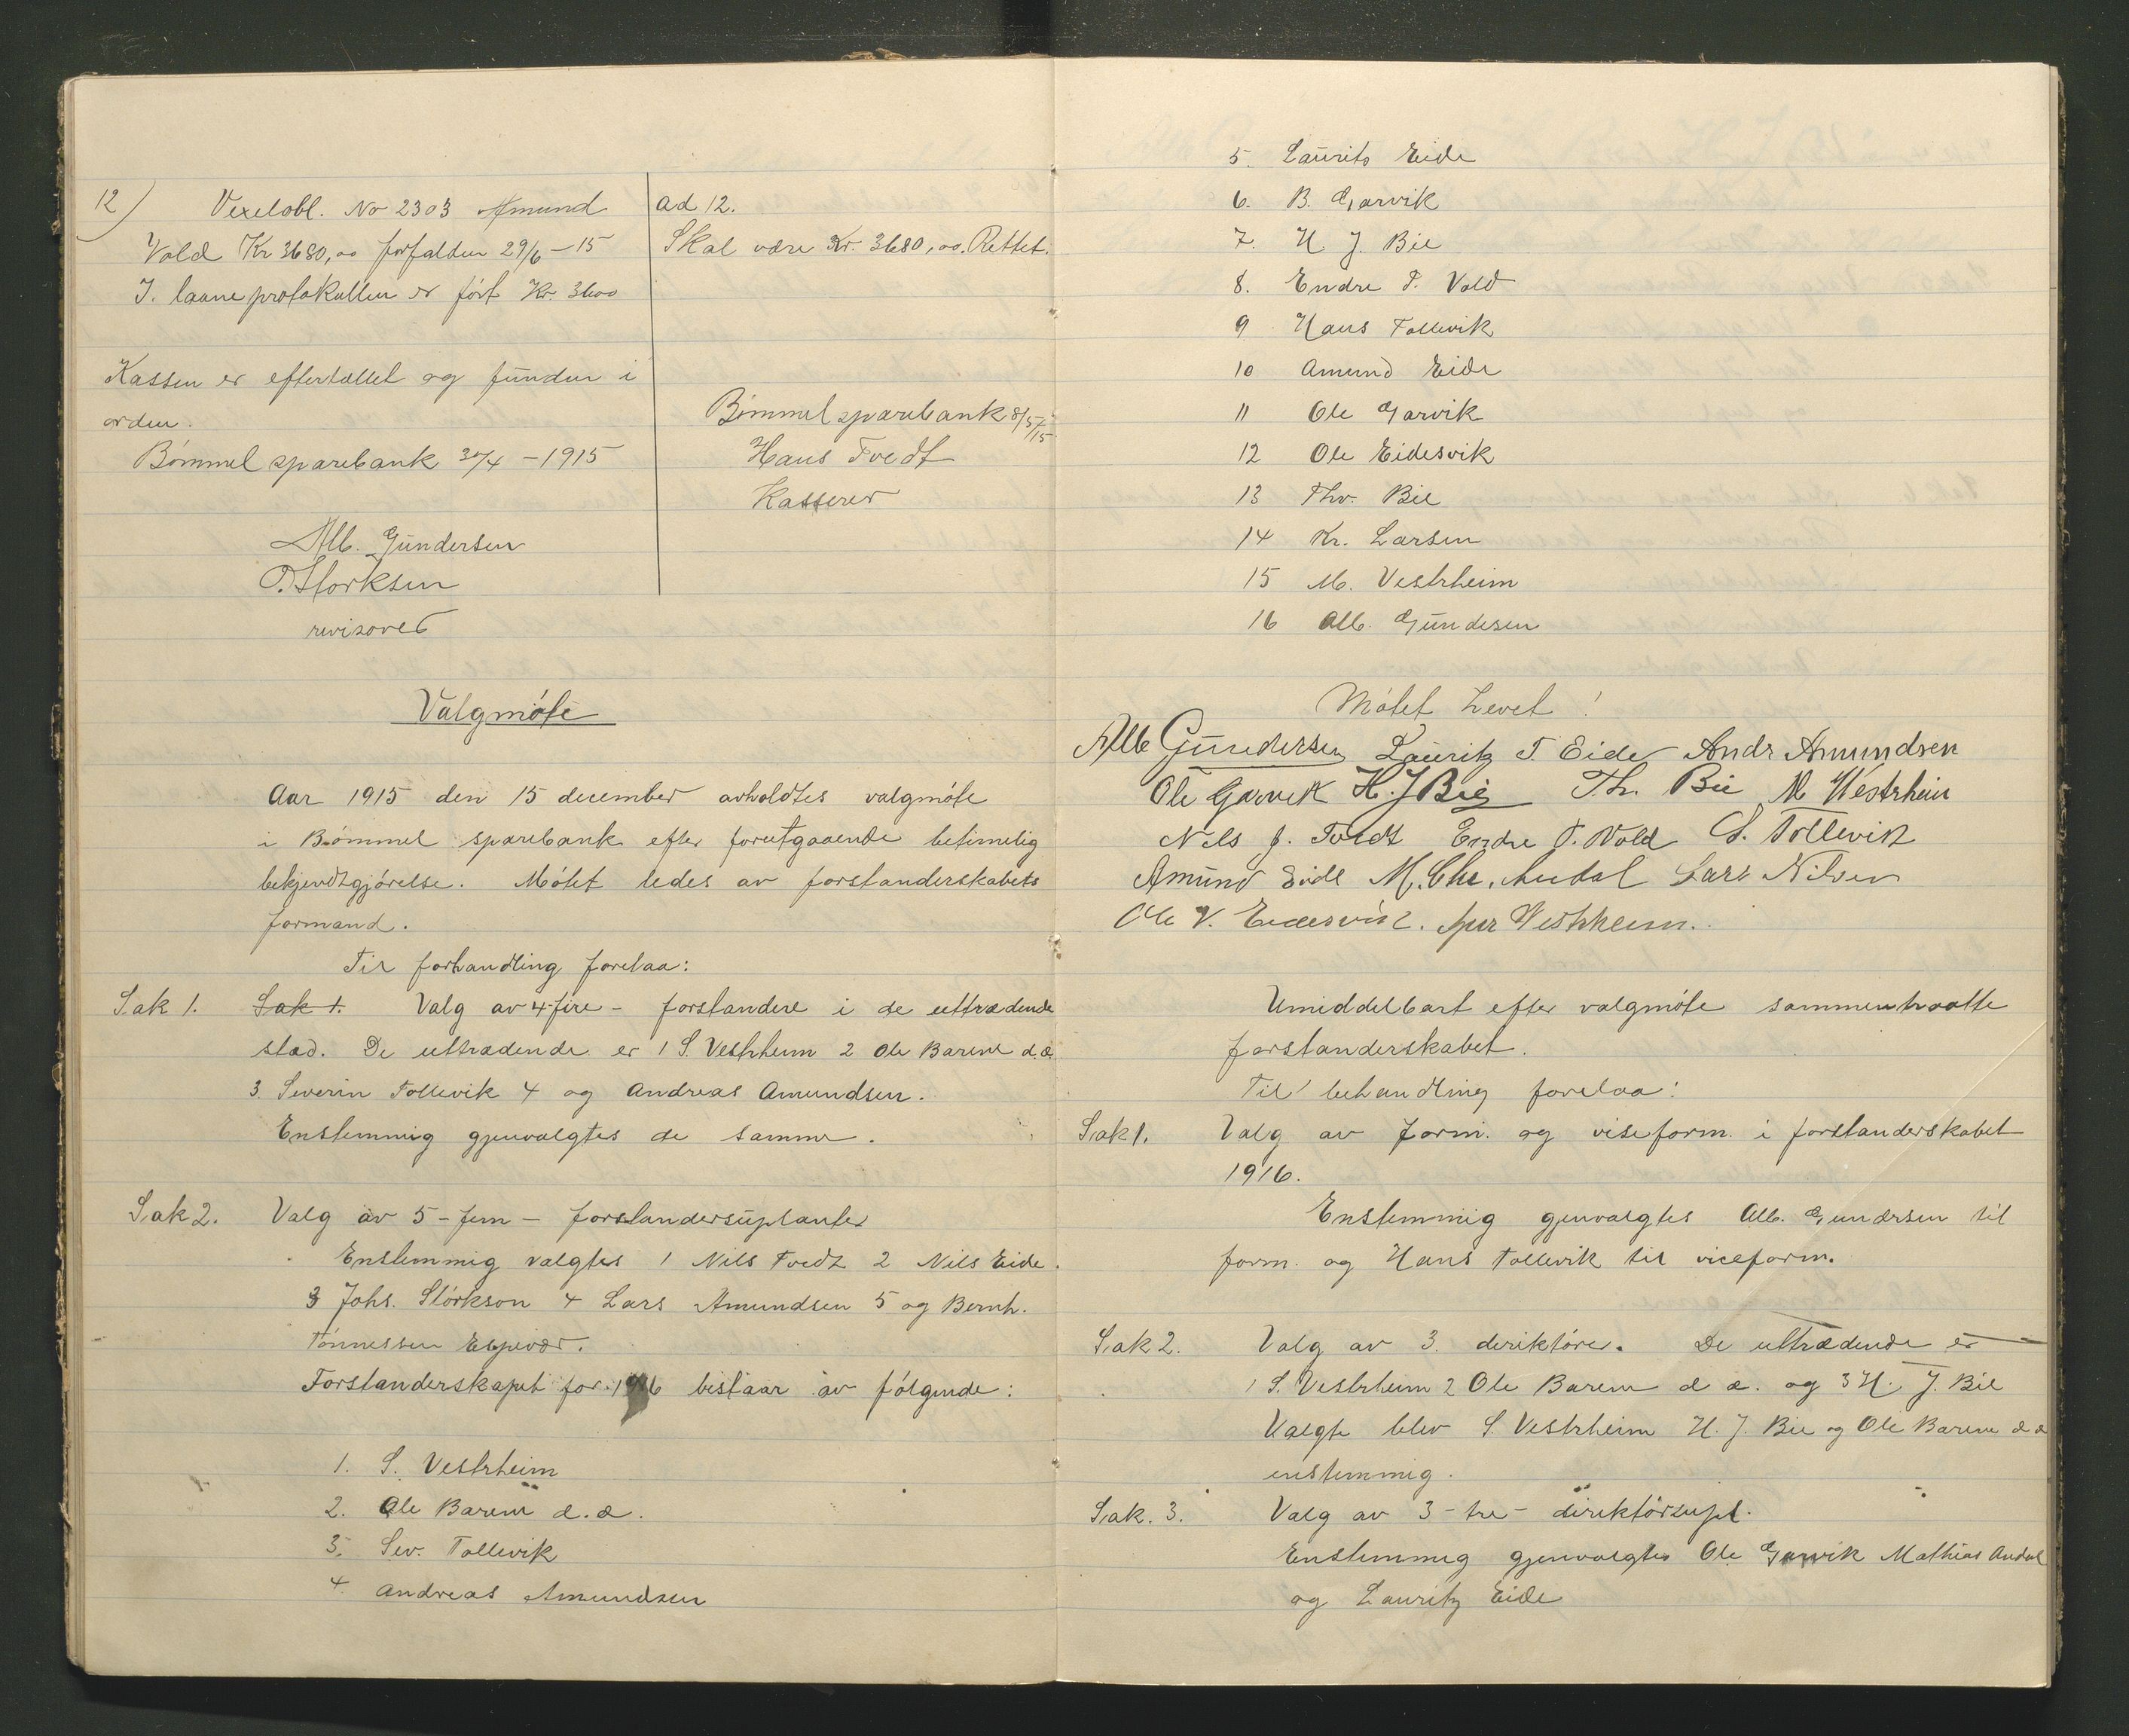 12) Vexelobl. No 2303 Amund
Vold Kr 3680,00 forfalden 29/6 - 15
I. laaneprotokollen er ført Kr. 3600
Kassen er eftertællet og funden i
orden.
Bømmel sparebank 30/4 - 1915
Alb. Gundersen
O. Størksen
revisorer
ad 12.
Skal være Kr. 3680,00. Rettet.
Bømmel sparebank 8/5/15
Hans Tvedt
Kasserer
Valgmøte
Aar 1915 den 15 december avholdtes valgmøte
i Bømmel sparebank efter forutgaaende betimelig
bekjendtgjørelse. Møtet ledes av forstanderskabets
formand.
Til forhandling forelaa:
Sak 1. Sak 1. Valg av 4 fire - forstandere i de uttrædende
sted. De uttrædende er 1 S. Vestrheim 2 Ole Barene d.æ.
3 Severin Tollevik 4 og Andreas Amundsen.
Enstemmig gjenvalgtes de samme.
Sak 2. Valg av 5 - fem - forstandersuplanter
Enstemmig valgtes 1 Nils Tvedt 2 Nils Eide.
3 Johs. Størkson 4 Lars Amundsen 5 og Bernh.
Tønnessen Espevær.
Forstanderskapet for 1916 bestaar av følgende:
1. S. Vestrheim
2. Ole Barene d.æ.
3. Sev. Tollevik
4. Andreas Amundsen
5. Laurits Eide
6. B. Garvik
7. H. J. Bie
8. Endre T. Vold
9 Hans Tollevik
10 Amund Eide
11 Ole Garvik
12 Ole Eidesvik
13 Thv. Bie
14 Kr. Larsen
15 M. Vestrheim
16 Alb. Gundesen
Møtet hevet!
Alb Gundersen Lauritz T. Eide Andr Amundsen
Ole Garvik H. J Bie Th. Bie M Westrheim
Nils J. Tvedt Endre T. Vold S. Tollevik
Amund Eide M. Chr. Audal Lars Nilsen
Ole V. Eidesvik. Westrheim.
Umiddelbart efter valgmøte sammentraatte
forstanderskabet.
Til behandling forelaa:
Sak 1. Valg av form. og viseform. i forstanderskabet
1916.
Enstemmig gjenvalgtes Alb. Gundersen til
form. og Hans Tollevik til viceform.
Sak 2. Valg av 3. deriktører. De uttrædende er
1 S. Vestrheim 2 Ole Barene d æ. og 3 H. J. Bie
Valgte blev S. Vestrheim H. J. Bie og Ole Barene d æ
enstemmig.
Sak. 3. Valg av 3 - tre - direktørsupl.
Enstemmig gjenvalgtes Ole Garvik Mathias Audal
og Lauritz Eide